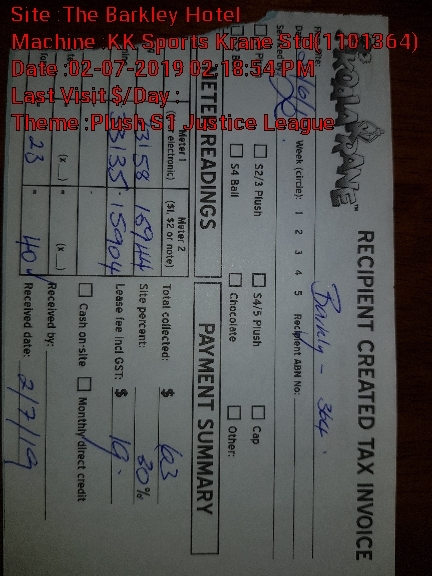 Site :The Barkley Hotel
Machine :KK Sports Krane Std(1101364)
Date :02-07-2019 02:18:54 PM
Last Visit $/Day :
Theme :Plush S1 Justice League
RECIPIENT CREATED TAX INVOICE
Barkely - 364
Week (circle): 1 2 3 4 5 Recipient ABN No:
S2/3 Plush S4/5 Plush Cap
S4 Ball Chocolate Other:
METER READINGS
Meter 1
electronic)
Meter 2
($1, $2 or note)
3158 15944
3135 15904
(x ) (x )
23 40
PAYMENT SUMMARY
Total collected: $ 63
Site percent: 30%
Lease fee incl GST: $ 19.
Cash on-site Monthly direct credit
Received by:
Received date: 2/7/19